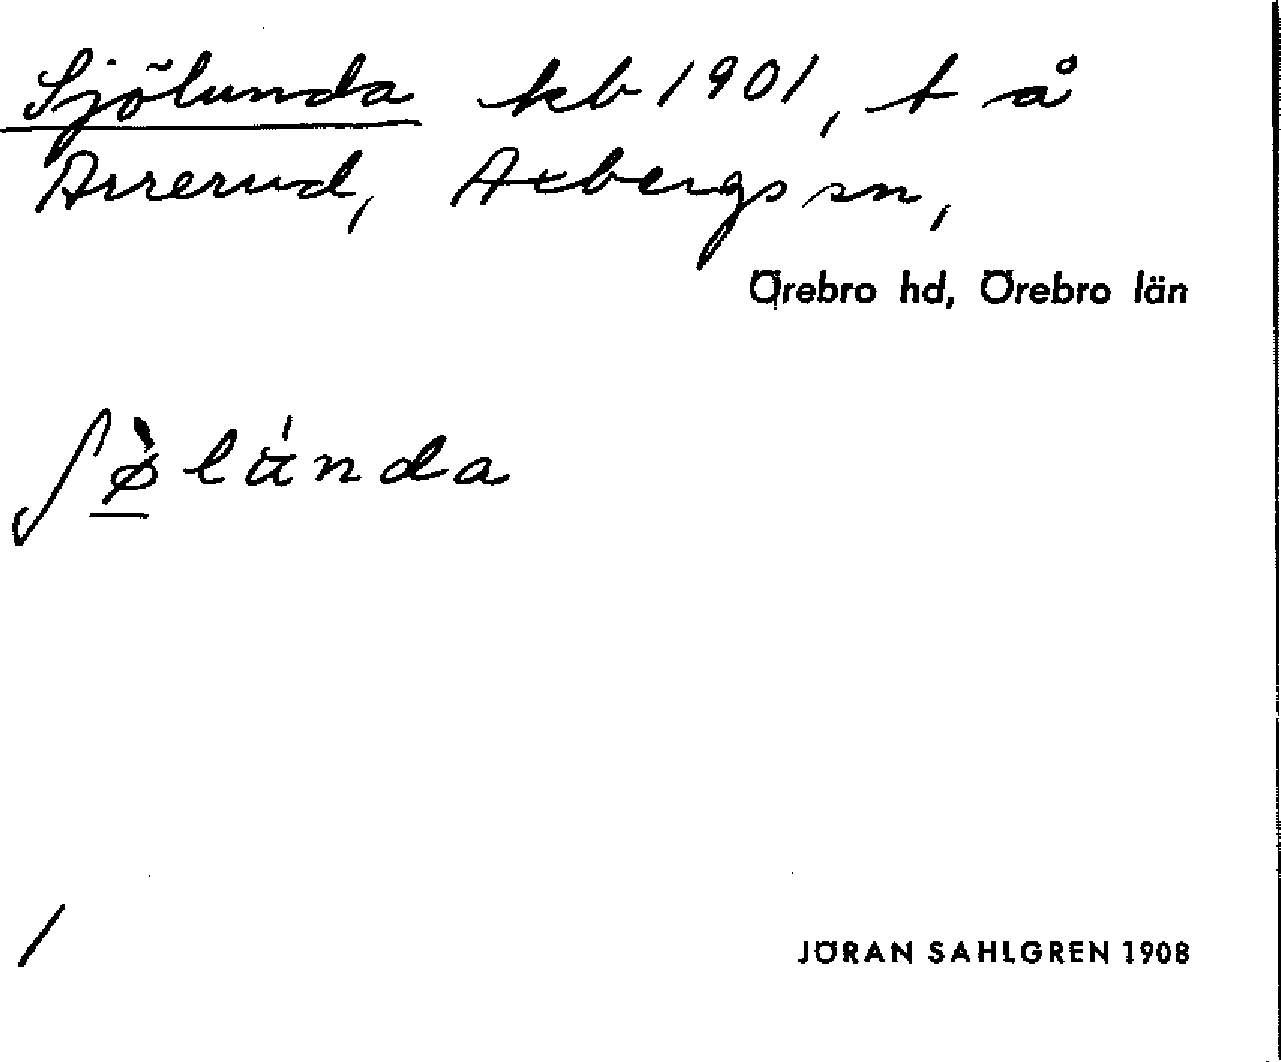 Sjölunda kb 1901, t å
Arrerud, Axbergs sn,
Örebro hd, Örebro län
ʃø̀lu̇nda
/
JÖRAN SAHLGREN 1908